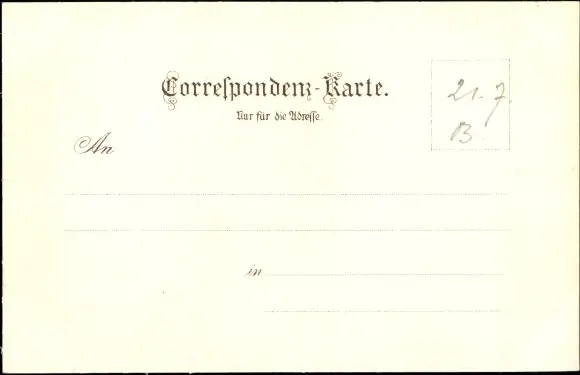 Correſpondenz-Karte.
Nur für die Adreſſe.
21.7.
B.
An
in